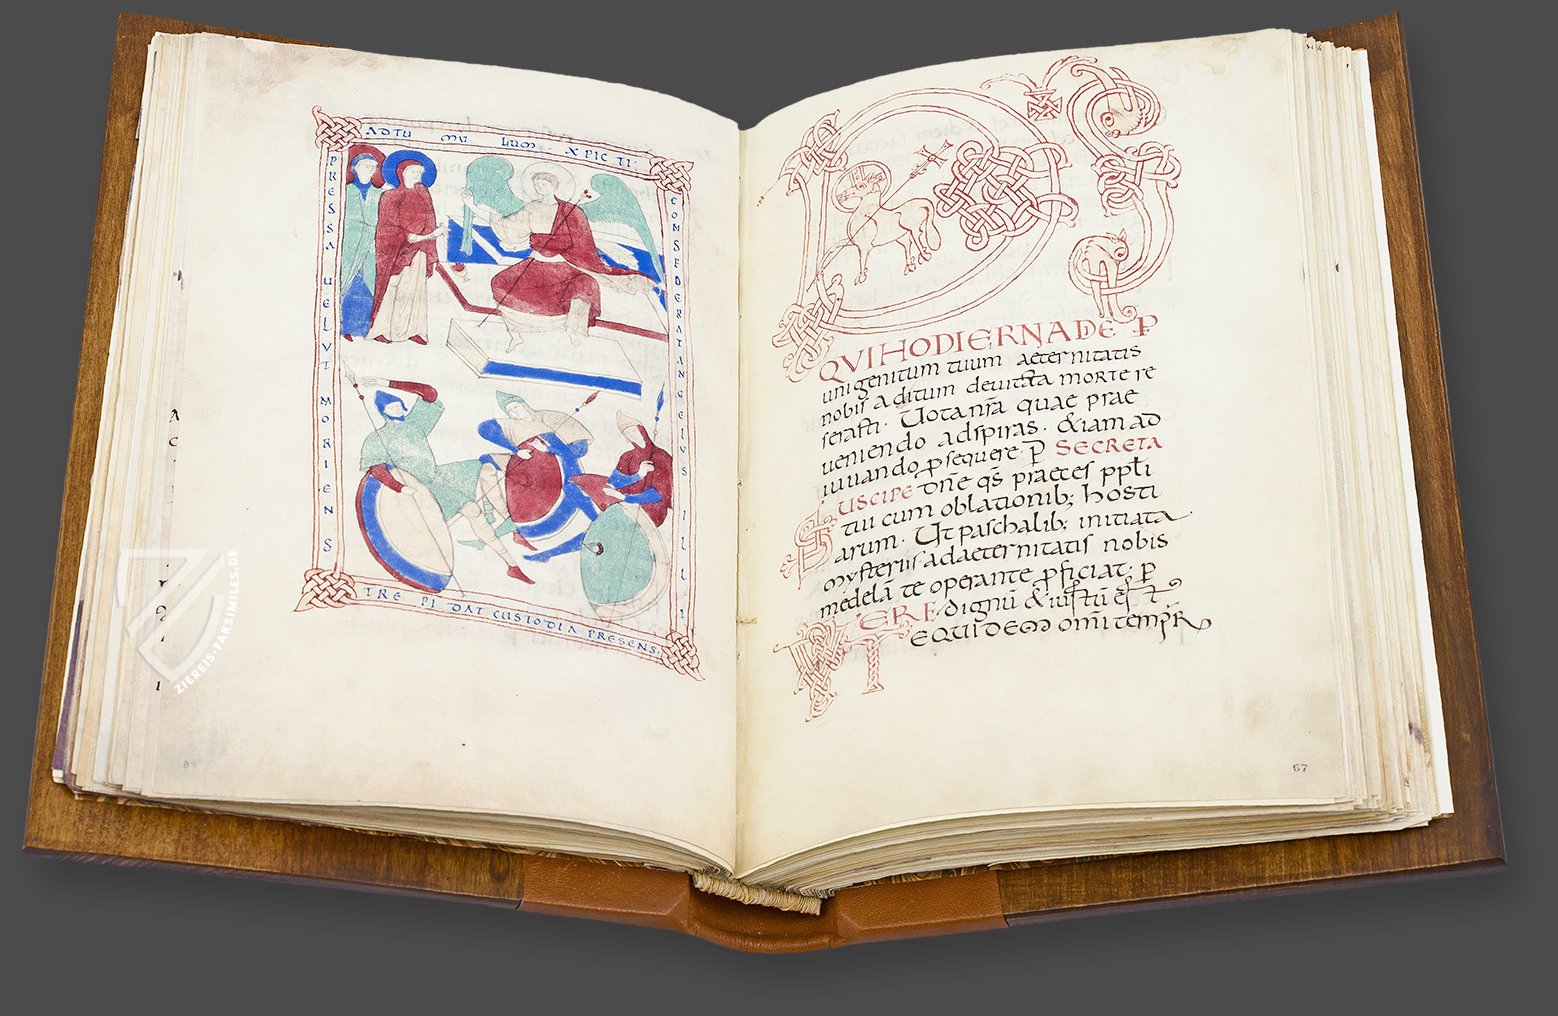 AD TU MU LUM XPICTI
PRESSA UELUT MORIENS
CONSPDERAT ANGELUS ILLI
TRE PI DAT CUSTODIA PRESENS.
DS
QVI HODIERNA DE P
unigenitum tuum aeternitatis
nobis aditum deuicta morte re
serasti. Uota nrā quae prae
ueniendo adspiras. & iam ad
iuuando p̄sequere. P̄ SECRETA
SUSCIPE dn̄e qs̄ praeces ppl̄i
tui cum oblationib; hosti
arum. Ut paschalib; initiata
mysteriis ad aeternitatis nobis
medelā te operante p̄ficiat. p̄
VERE dignū & iustū ē
TE QUIDEM omī tempr̄
67
ZIEREIS-FAKSIMILES.DE